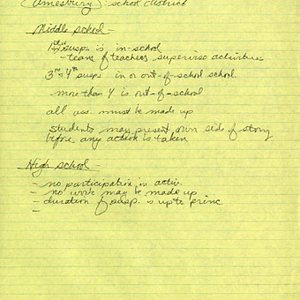 (Amesbury) school district
Middle school -
susps is in-school
- teams of teachers supervise activities
3rd & 4th susps in or out-of-school school
more than 4 is out-of-school
all ass. must be made up
students may present own side of story
before any action is taken
High school -
- no participation in activ.
- no work may be made up
- duration of susp. is up to princ
-